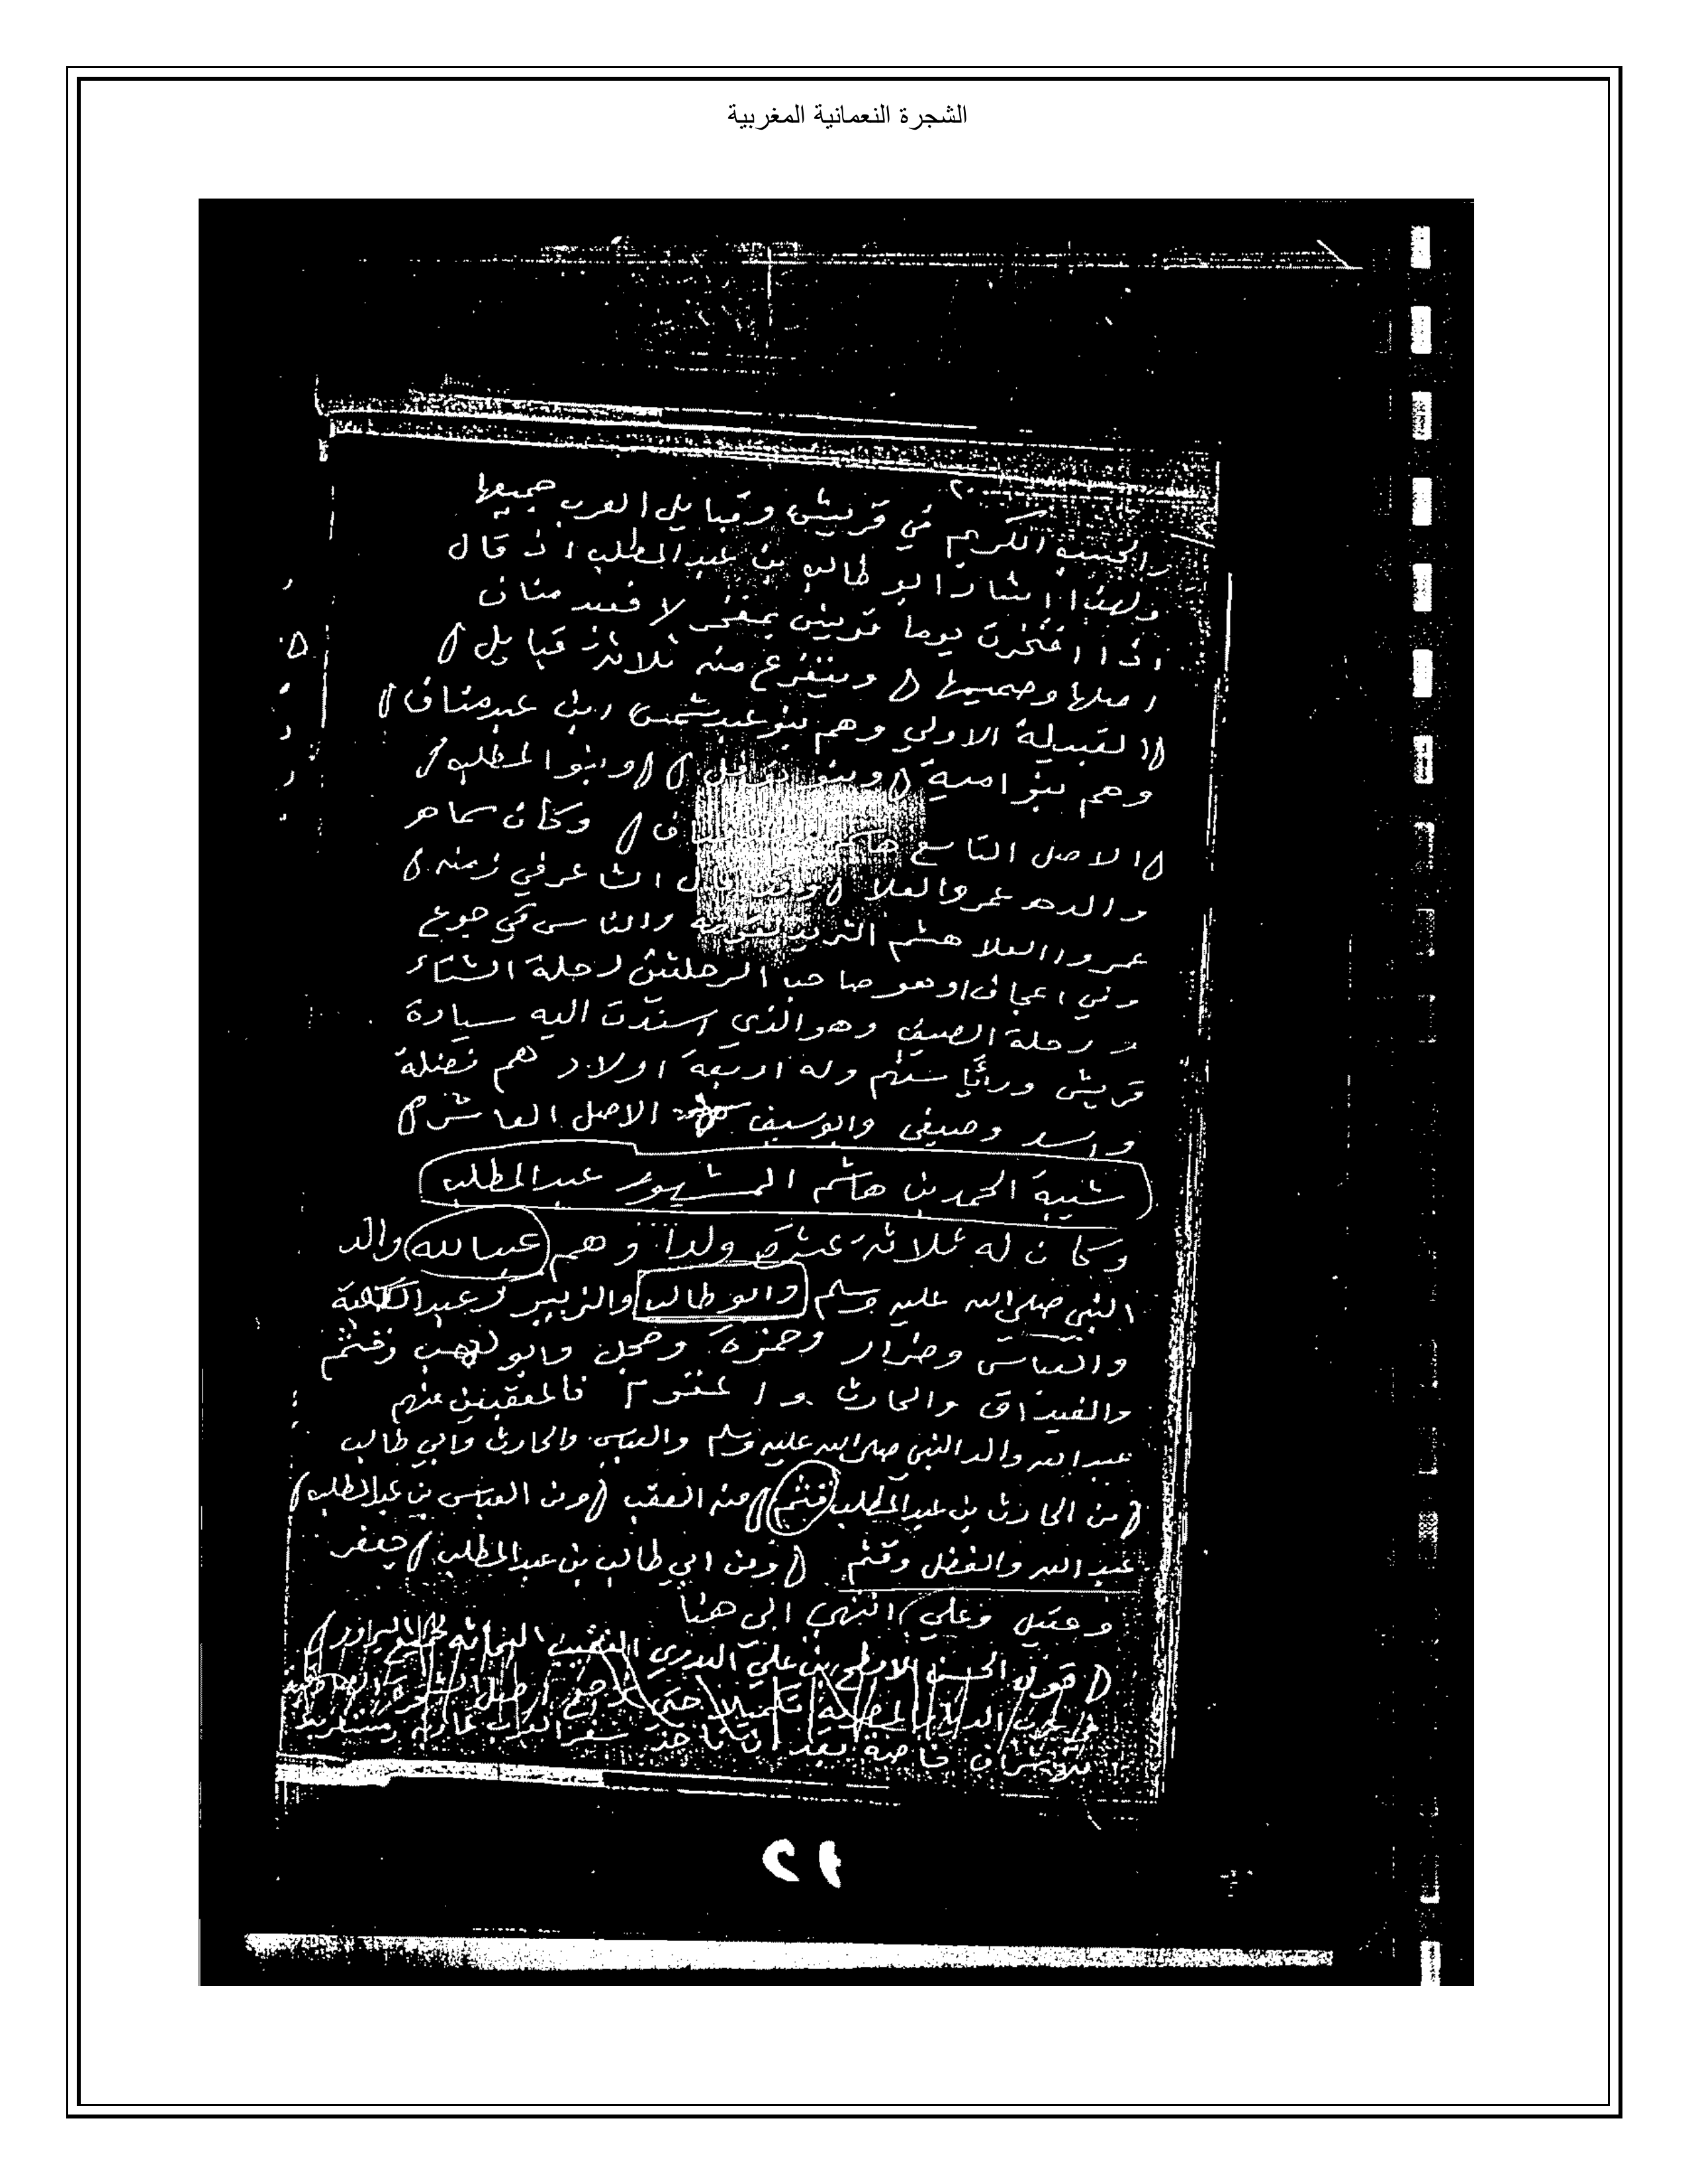 الشجرة النعمانية المغربية
والحسب الكريم في قريش وقبايل العرب جميعها
ولهذا اشار ابو طالب بن عبد المطلب اذ قال
اذا افتخرت يوما قريش بمفخر لا فعبد مناف
اصلها وصميمها ( ويتفرع منه ثلاثة قبايل (
(القبيلة الاولي وهم بنو عبد شمس ابن عبد مناف (
وهم بنو امية ( وبنو نوفل ( ( وابنوا المطلب (
( الاصل التاسع هاشم مناف ( وكان سماهر
والده عمر والعلا ( قال الشاعر في زمنه (
عمروا العلا هشم الثريد لقومه والناس في جوع
وفي اعجاف وهو صاحب الرحلتين رحلة الشتاء
و رحلة الصيف وهو الذي اسندت اليه سيادة
قريش ورئاستهم وله اربعة اولاد هم نضلة
واسد وصيفي والوسيف الاصل العاشر (
شيبة الحمد بن هاشم المشهور عبد المطلب
وكان له ثلاثة عشر ولدا وهم عبد الله والد
النبي صلى الله عليه وسلم وابو طالب والزبير وعبد الكعبة
والعباس وضرار وحمزة وحجل وابو لهب وقثم
والغيداق والحارث و فالمعقبين منهم
عبد الله والد النبي صلى الله عليه وسلم والعباس والحارث وابي طالب
(من الحارث بن عبد المطلب قثم ( منه العقب ( ومن العباس بن عبد المطلب)
عبد الله والفضل وقثم ( ومن ابي طالب بن عبد المطلب ( جعفر
وعقيل وعلي ( انتهى الى هنا
( قول الحسن بن علي البدري النقيب
حتى
خاصة بعد ان تاخذ العرب
٢١